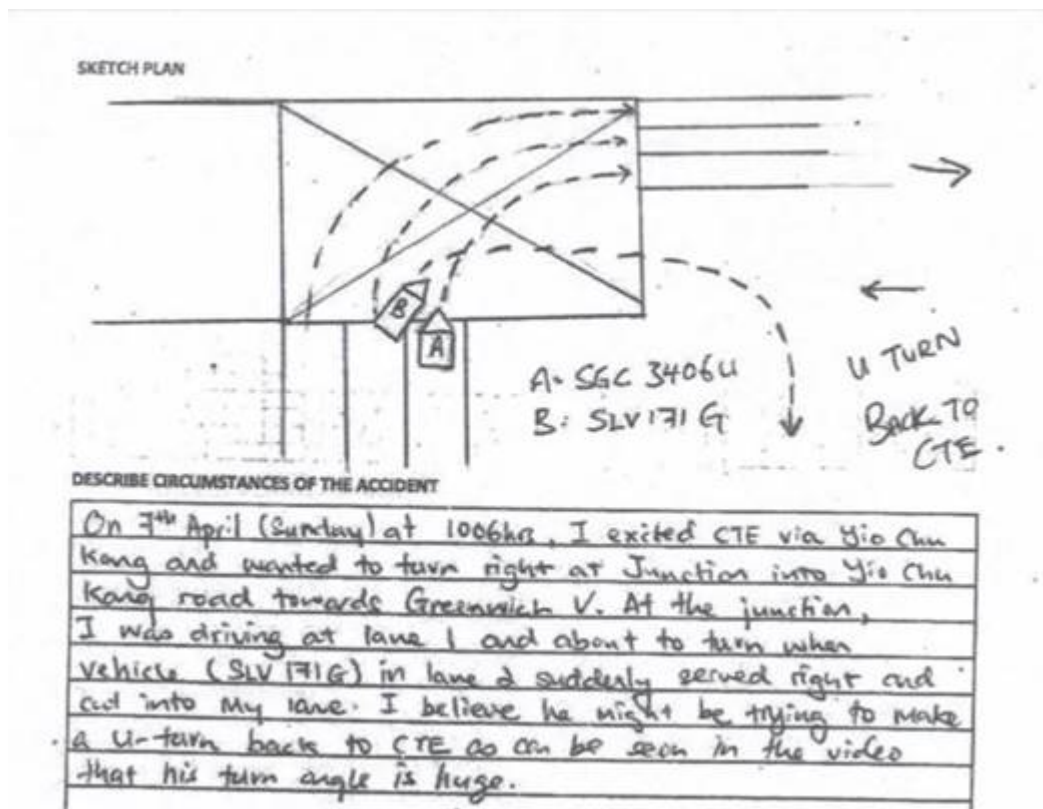 SKETCH PLAN
B
A
A- SGC 3406U
B: SLV 171 G
U TURN
BACK TO
CTE.
DESCRIBE CIRCUMSTANCES OF THE ACCIDENT
On 7th April (Sunday) at 1006hrs, I exited CTE via Yio Chu
Kang and wanted to turn right at Junction into Yio Chu
Kang road towards Greenwich V. At the junction,
I was driving at lane 1 and about to turn when
vehicle (SLV 171G) in lane 2 suddenly served right and
cut into my lane. I believe he might be trying to make
a U-turn back to CTE as can be seen in the video
that his turn angle is huge.